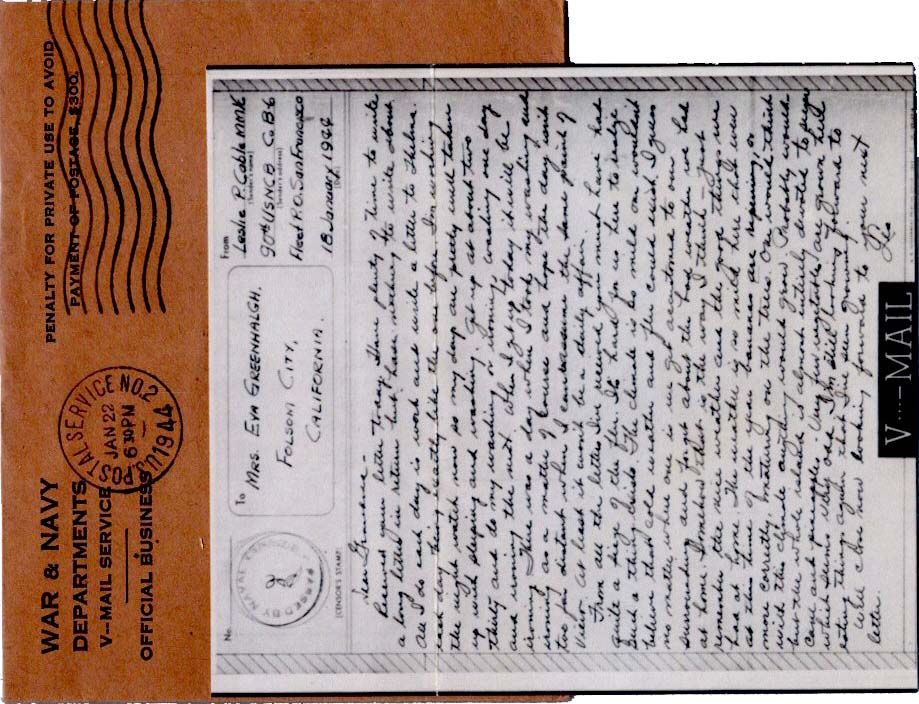 WAR & NAVY
DEPARTMENTS
V---MAIL SERVICE
OFFICIAL BUSINESS
PENALTY FOR PRIVATE USE TO AVOID
PAYMENT OF POSTAGE, $300.
U.S. POSTAL SERVICE NO. 2
JAN 22
6 30 PM
1944
No.
PASSED BY NAVAL CENSOR
(CENSOR'S STAMP)
To
MRS. EVA GREENHALGH.
FOLSOM CITY,
CALIFORNIA.
From
Leslie P. Cable MM1c
(Sender's name)
90th USNCB Co B6
(Sender's address)
Fleet P.O. San Francisco
18 January 1944
(Date)
Dear Grandma -
Received your letter today. Have plenty of time to write
a long letter in return but have nothing to write about.
All I do each day is work and write a letter to Thelma.
each day being exactly like the one before. I'm working
the night watch now so my days are pretty well taken
up with sleeping and washing. Get up at about two
thirty and do my washing or ironing. washing one day
and ironing the next. When I get up today it will be
ironing. There was a day when I took my washing and
ironing as a matter of course and hope the day isn't
too far distant when I can assume the same point of
view. At least it won't be a daily affair.
From all the letters I've received you must have had
quite a siege of the flu. It's hard for us here to realize
such a thing exists. The climate is so mild one wouldn't
believe that cold weather and flu could exist. I guess
no matter where one is we get accustomed to our
surroundings and forget about the bad weather we had
at home. Somehow that is the way. I think I just
remember the nice weather and the good things we
had at home. The weather is so mild here while even
as this time of the year bananas are ripening or
more correctly maturing on the trees. One would think
with this climate anything would grow. Probably would
but the whole island is almost entirely devoted to sugar
cane and pineapples. Very few potatoes are grown here
which seems very odd. I'm still looking forward to
eating things again that I've seen growing.
Will close now looking forward to your next
letter.
Les
V---MAIL